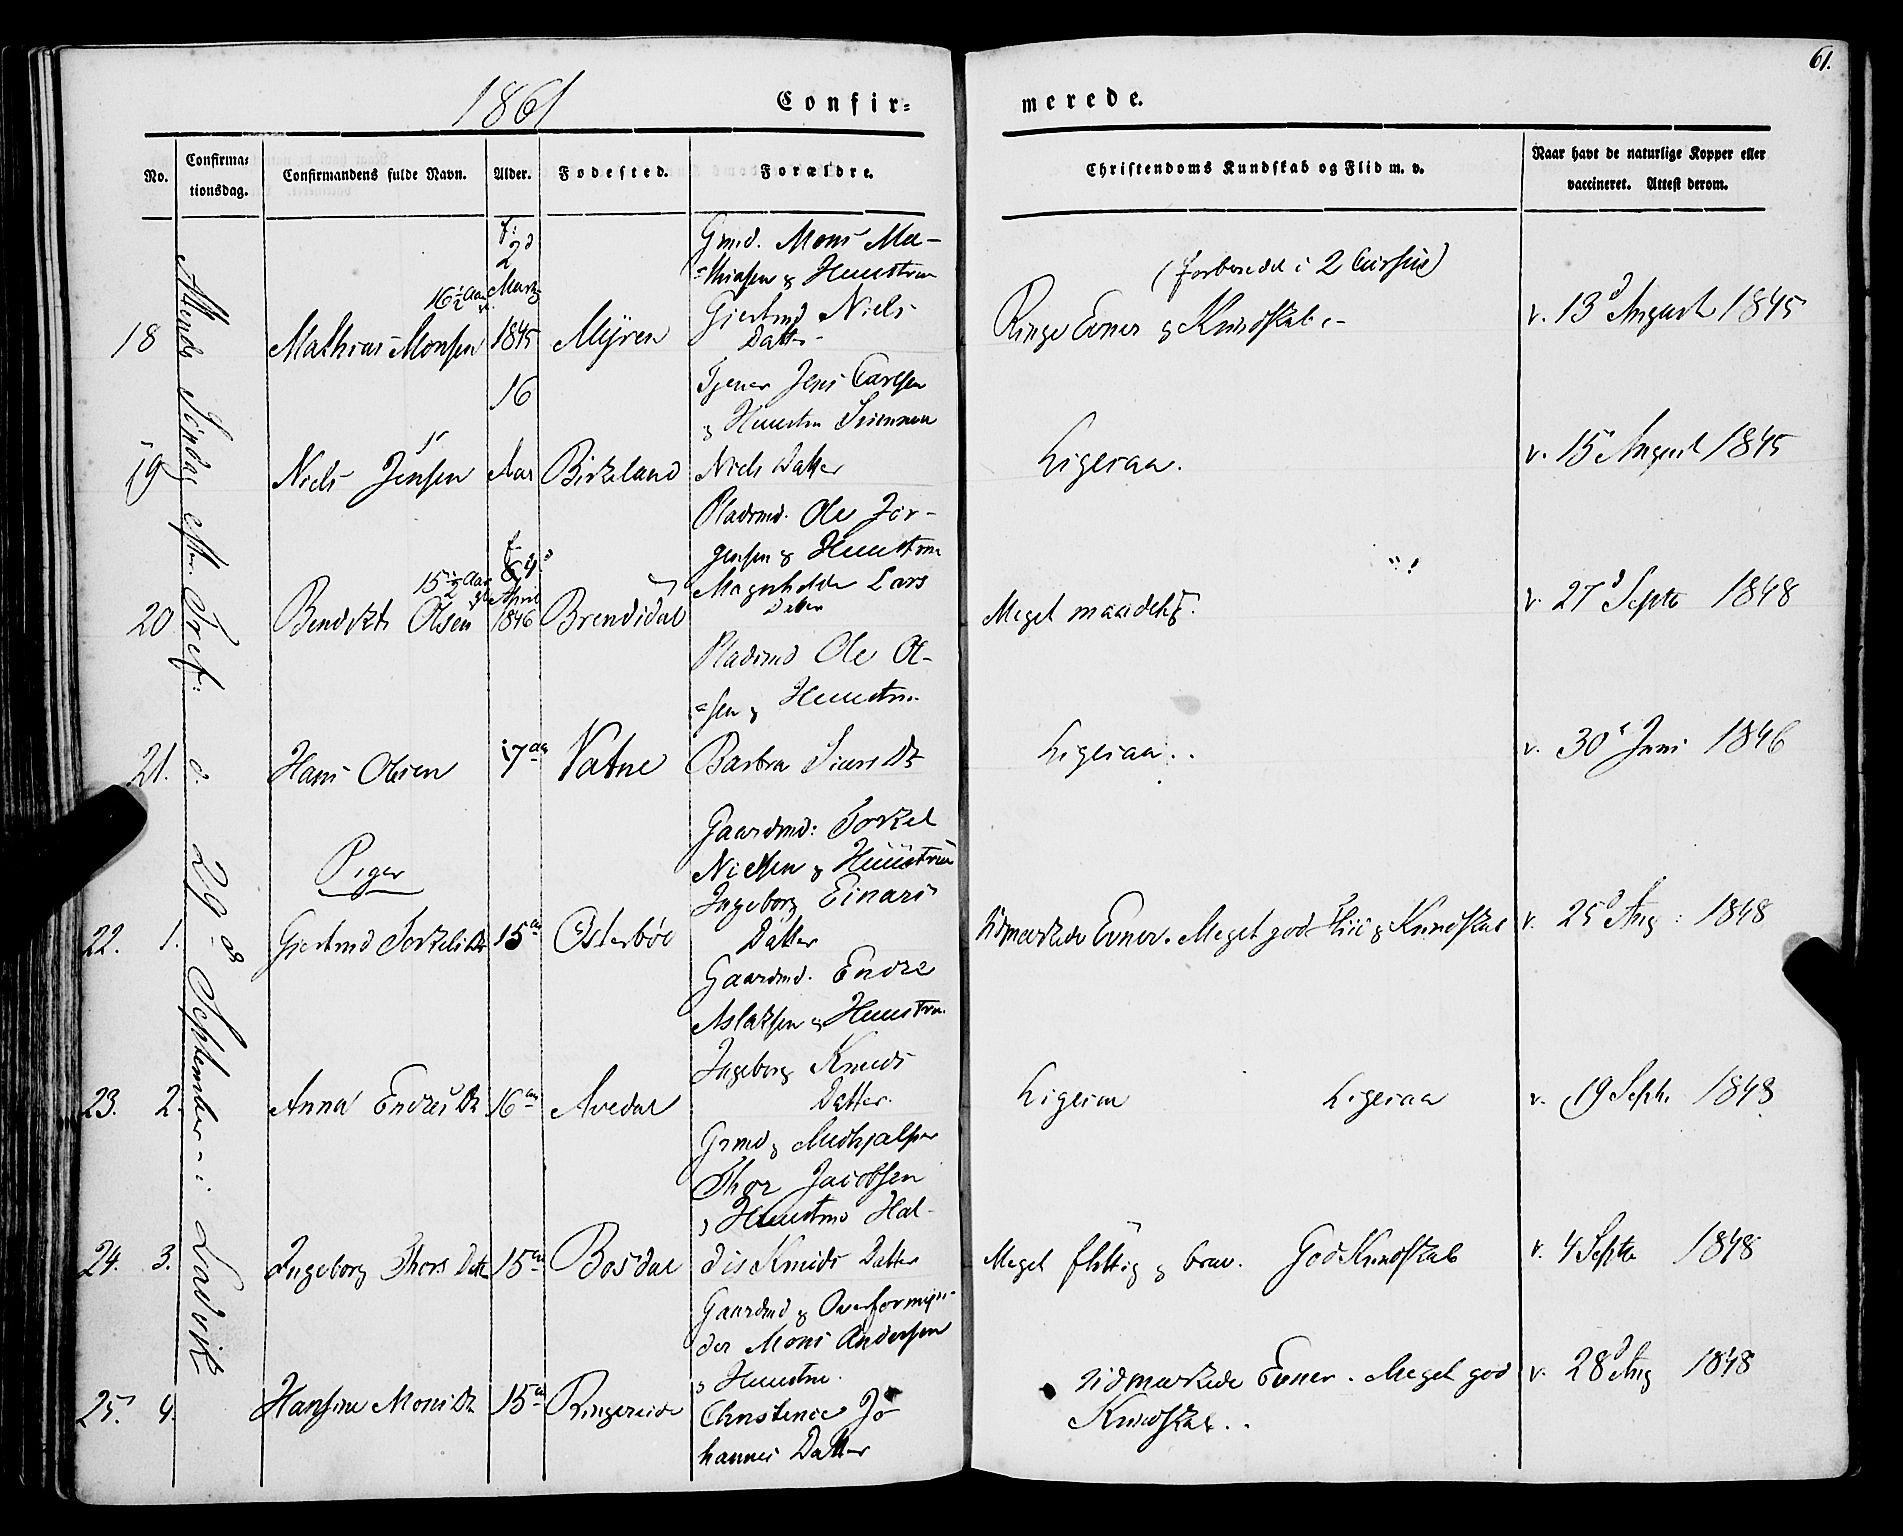 61.
1861
Confir-
merede.
No.
Confirma-
tionsdag.
Confirmandens fulde Navn.
Alder.
Fødested.
Forældre.
Christendoms Kundskab og Flid m. v.
Naar havt de naturlige Kopper eller
vaccineret. Attest derom.
18
Mathias Monsen
16 1/2 Aar
f:
2d
Marts
1845
Myren
Grmd. Mons Ma-
=thiasen & Huustru
Giertrud Niels
Datter
(forberedet i 2 Cursus)
Ringe Evner & Kundskab
v. 13d August 1845
19
Niels Jensen
16
Aar
Birkeland
Tjener Jens Carlsen
& Huustru
Niels Datter
Ligesaa.
v. 15 August 1845
20
Bendikt Olsen
15 1/2 Aar
f.
April
1846
Brendsdal
Pladsmd. Ole Jør-
gensen & Huustru
Magnhilde Lars
Datter
Meget maadelig.
v. 27d Septe 1848
21.
Hans Olsen
17 aa
Vatne
Pladsmd Ole Ol-
=sen & Huustru
Barbra Siurs Dt
Ligesaa.
v. 30 Juni 1846
Piger
22. 1.
Giertrud Torkels Dt
15 aa
Osterbøe
Gaardmd: Torkel
Nielsen & Huustru
Ingeborg Einars
Datter
Udmærkede Evner. Meget god Flid & Kundskab
v. 25d Aug: 1848
23. 2.
Anna Endres Dt
16 aa
Avedal
Gaardmd. Endre
Aslaksen & Huustru
Ingeborg Knuds
Datter.
Ligesaa Ligesaa
v. 19 Septr. 1848
24. 3.
Ingeborg Thors Datt
15 aa
Bosdal
Grmd & Medhjælper
Thor Jacobsen
& Huustru Hal-
dis Knuds Datter
Meget flittig & brav. God Kundskab
v. 4 Septe 1848
25. 4.
Hansine Mons Dt
15 aa
Ringereide
Gaardmd & Overformyn-
der Mons Andersen
& Huustru.
Christence Jo-
hannes Datter
Udmærkede Evner. Meget god
Kundskab.
v. 28d Aug 1848
Søndag efter Tref: d. 29de September i Ladvik